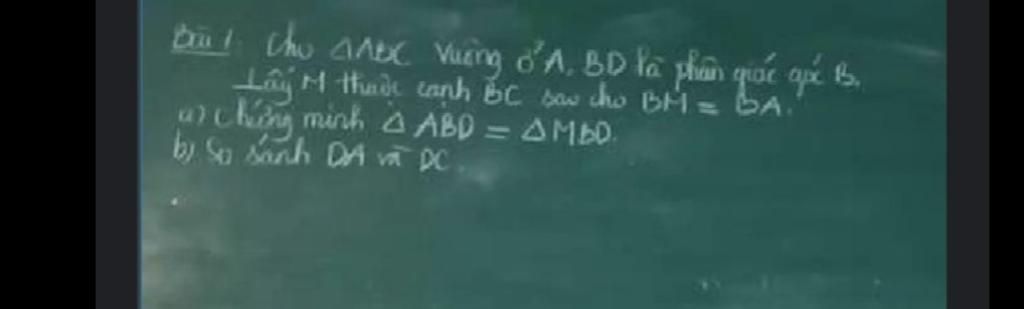 Bài 1: Cho ΔABC vuông ở A, BD là phân giác góc B.
Lấy M thuộc cạnh BC sao cho BM = BA.
a) Chứng minh Δ ABD = ΔMBD.
b) So sánh DA và DC.